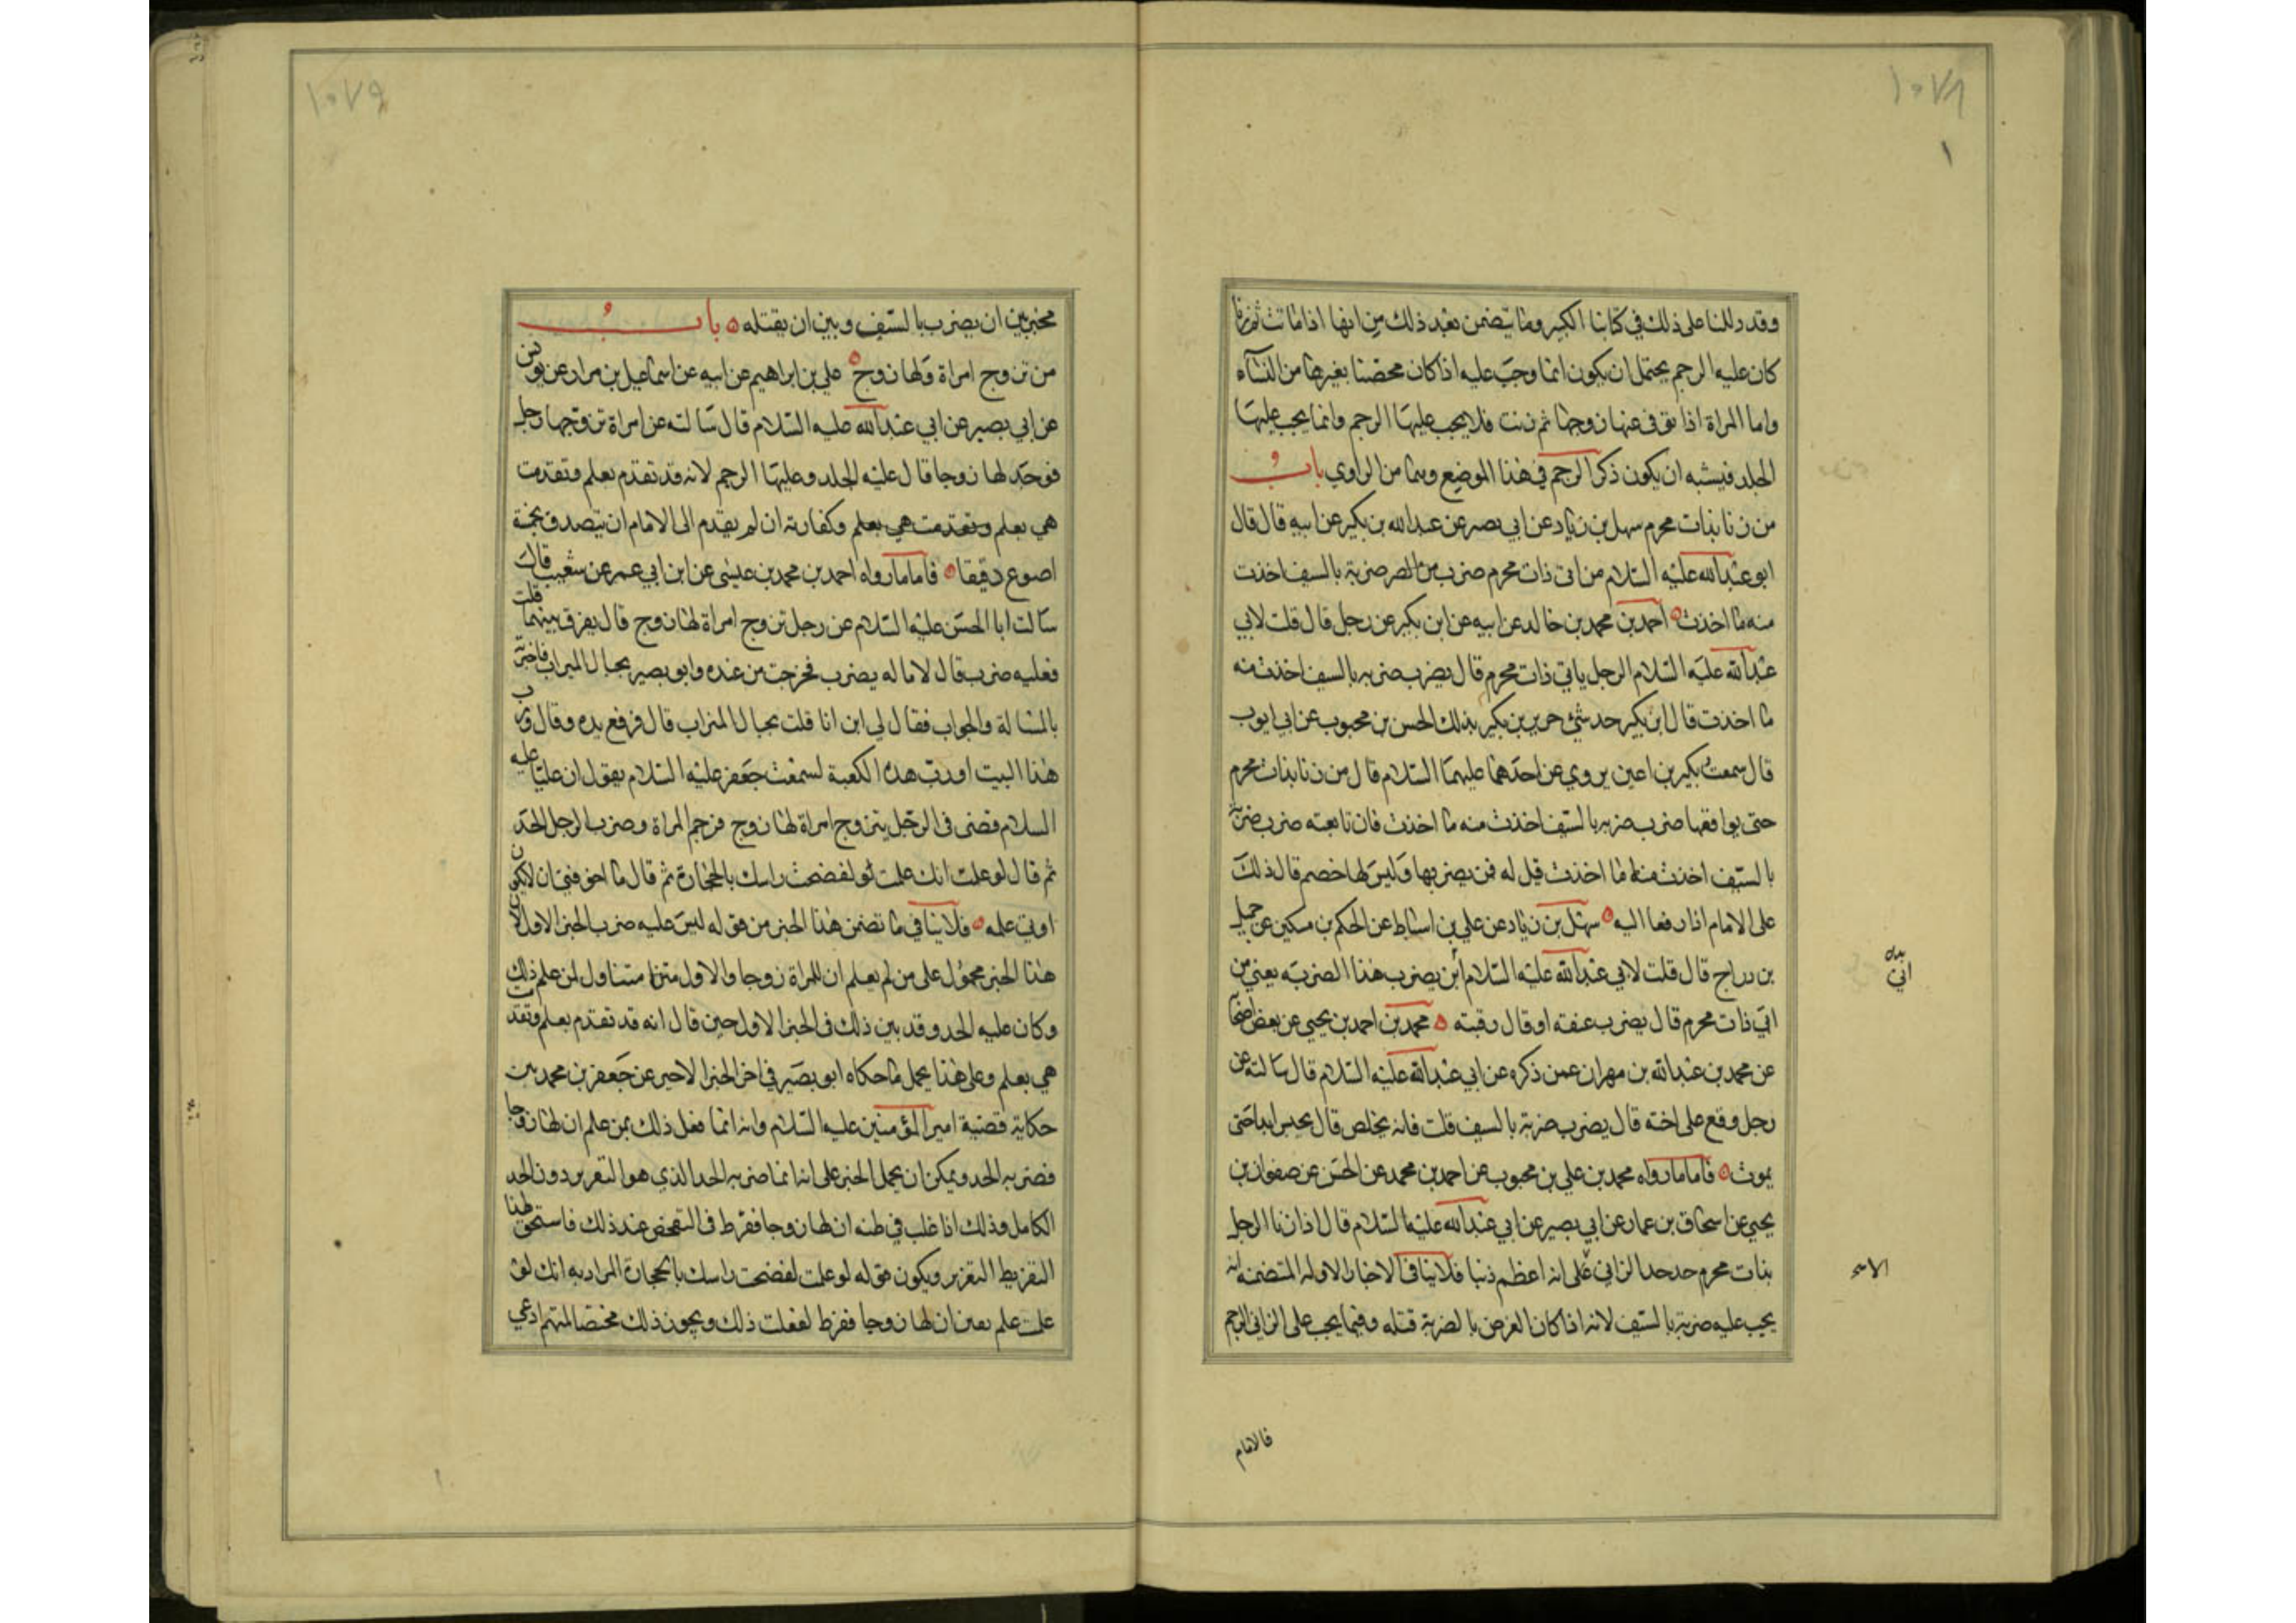 ١٠٧٨
١
وقد دللنا على ذلك في كتابنا الكبير وما يتضمن بعد ذلك من انها اذا ماتت ثم زنا
كان عليه الرجم يحتمل ان يكون انما وجب عليه اذا كان محصنا بغيرها من النساء
واما المراة اذا توفى عنها زوجها ثم زنت فلا يجب عليها الرجم وانما يجب عليها
الجلد فيشبه ان يكون ذكر الرجم في هذا الموضع وهما من الراوي باب
من زنا بذات محرم سهل بن زياد عن ابي بصر عن عبد الله بن بكير عن ابيه قال قال
ابو عبد الله عليه السلام من اتى ذات محرم ضرب ضربة بالسيف اخذت
منه ما اخذت احمد بن محمد بن خالد عن ابيه عن ابن بكير عن رجل قال قلت لابي
عبد الله عليه السلام الرجل ياتي ذات محرم قال يضرب ضربه بالسيف اخذت منه
ما اخذت قال ابن بكير حدثني حريز بن بكير بذلك الحسن بن محبوب عن ابي ايوب
قال سمعت بكير بن اعين يروي عن احدهما عليهما السلام قال من زنا بذات محرم
حتى يواقعها ضرب ضربه بالسيف اخذت منه ما اخذت فان تابعته ضرب ضربة
بالسيف اخذت منها ما اخذت قيل له فمن يضربها وليس لها خصم قال ذلك
على الامام اذا رفعا اليه سهل بن زياد عن علي بن اسباط عن الحكم بن مسكين عن جميل
بن دراج قال قلت لابي عبد الله عليه السلام اين يضرب هذا الضربه يعني من
اتى ذات محرم قال يضرب عنقه او قال رقبته محمد بن احمد بن يحيى عن بعض اصحابا
عن محمد بن عبد الله بن مهران عمن ذكره عن ابي عبد الله عليه السلام قال سالته عن
رجل وقع على اخته قال يضرب ضربة بالسيف قلت فانه يخلص قال يحبس ابدا حتى
يموت فاما ما رواه محمد بن علي بن محبوب عن احمد بن محمد عن الحسن عن صفوان بن
يحيى عن اسحاق بن عمار عن ابي بصير عن ابي عبد الله عليه السلام قال اذا زنا الرجل
بذات محرم حد حد الزاني على انه اعظم ذنبا فلا ينافي الاخبار الاوله المتضمنه انه
يجب عليه ضربة بالسيف لانه اذا كان الغرض بالضربة قتله وفيما يجب على الزاني الرجم
فالامام
١٠٧٩
مخير بين ان يضرب بالسيف وبين ان يقتله باب
من تزوج امراة ولها زوج علي بن ابراهيم عن ابيه عن اسماعيل بن مرار عن يونس
عن ابي بصير عن ابي عبد الله عليه السلام قال سالته عن امراة تزوجها رجل
فوجد لها زوجا قال عليه الجلد وعليها الرجم لانه قد تقدم بعلم وتقدمت
هي بعلم وتقدمت هي بعلم وكفارته ان لم يقدم الى الامام ان يتصدق بخمسة
اصوع دقيقا فاما ما رواه احمد بن محمد بن عيسى عن ابن ابي عمير عن شعيب قال
سالت ابا الحسن عليه السلام عن رجل تزوج امراة لها زوج قال يفرق بينهما قلت
فعليه ضرب قال لا ما له يضرب فخرجت من عنده وابو بصير بحيال الميزاب فاخبرته
بالمسالة والجواب فقال لي اين انا قلت بحيال الميزاب قال فرفع يده وقال ورب
هذا البيت او رب هذه الكعبة لسمعت جعفر عليه السلام يقول ان عليا عليه
السلام قضى في الرجل يتزوج امراة لها زوج فرجم المراة وضرب الرجل الحد
ثم قال لو علمت انك علمت لفضخت راسك بالحجارة ثم قال ما اخوفني ان لا يكون
اوتي علمه فلا ينافي ما تضمن هذا الخبر من قوله ليس عليه ضرب الخبر الاول لان
هذا الخبر محمول على من لم يعلم ان للمراة زوجا والاول متناول لمن علم ذلك
وكان عليه الحد وقد بين ذلك في الخبر الاول حين قال انه قد تقدم بعلم وتقدمت
هي بعلم وعلى هذا يحمل ما حكاه ابو بصير في اخر الخبر الاخير عن جعفر بن محمد من
حكاية قضية امير المؤمنين عليه السلام وانه انما فعل ذلك بمن علم ان لها زوجا
فضربه الحد ويمكن ان يحمل الخبر على انه انما ضربه الحد الذي هو التعزير دون الحد
الكامل وذلك اذا غلب في ظنه ان لها زوجا ففرط في التفحص عند ذلك فاستحق لهذا
التفريط التعزير ويكون قوله لو علمت لفضخت راسك بالحجارة المراد به انك لو
علمت علم يقين ان لها زوجا ففرط لفعلت ذلك ويجوز ذلك مختصا لمتهم ادعي